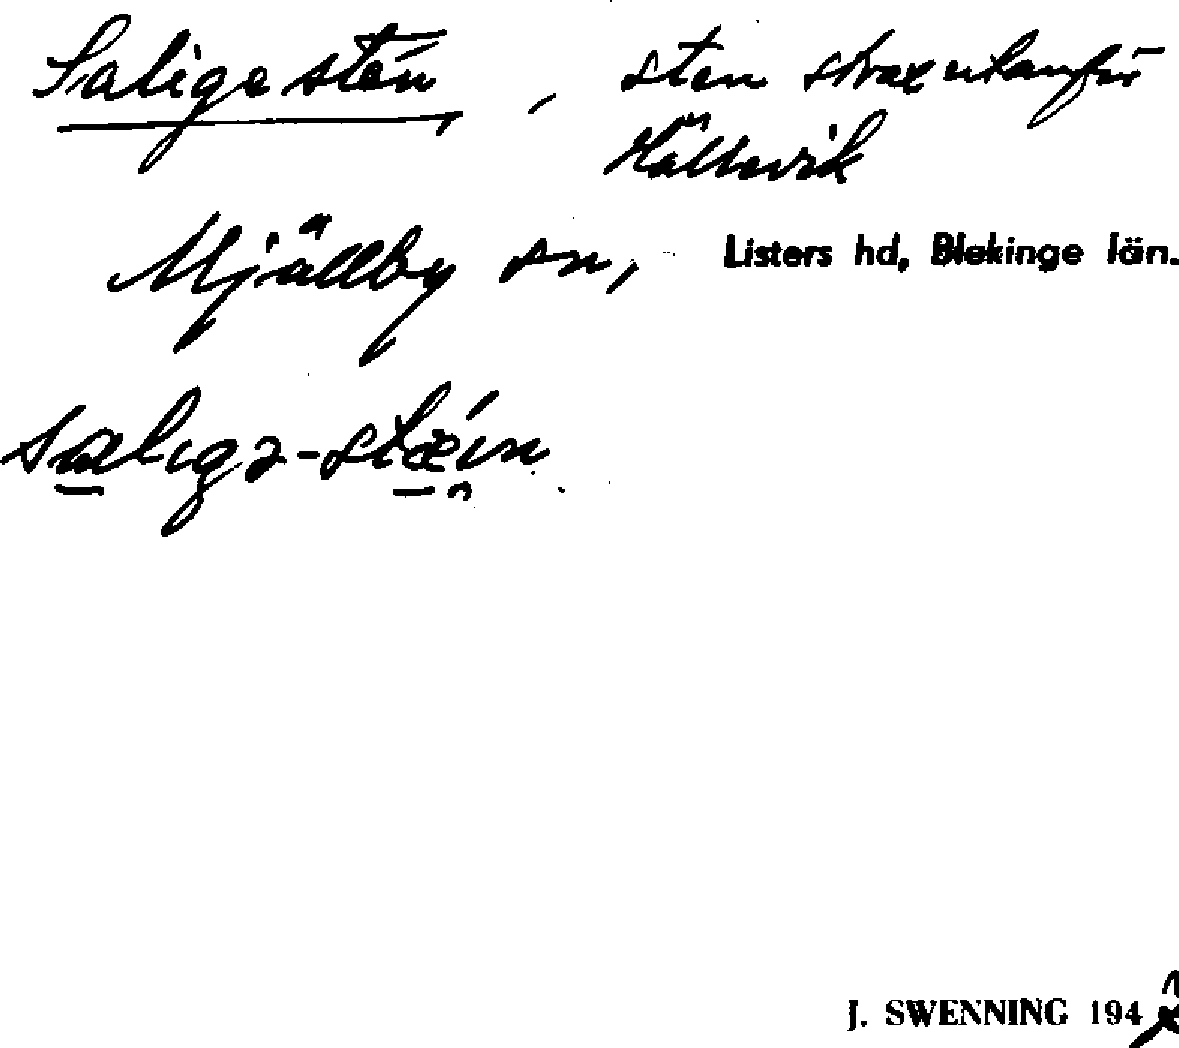 Saligesten, sten strax utanför
Hällevik
Mjällby sn, Listers hd, Blekinge län.
salıgə-stæin
J. SWENNING 194